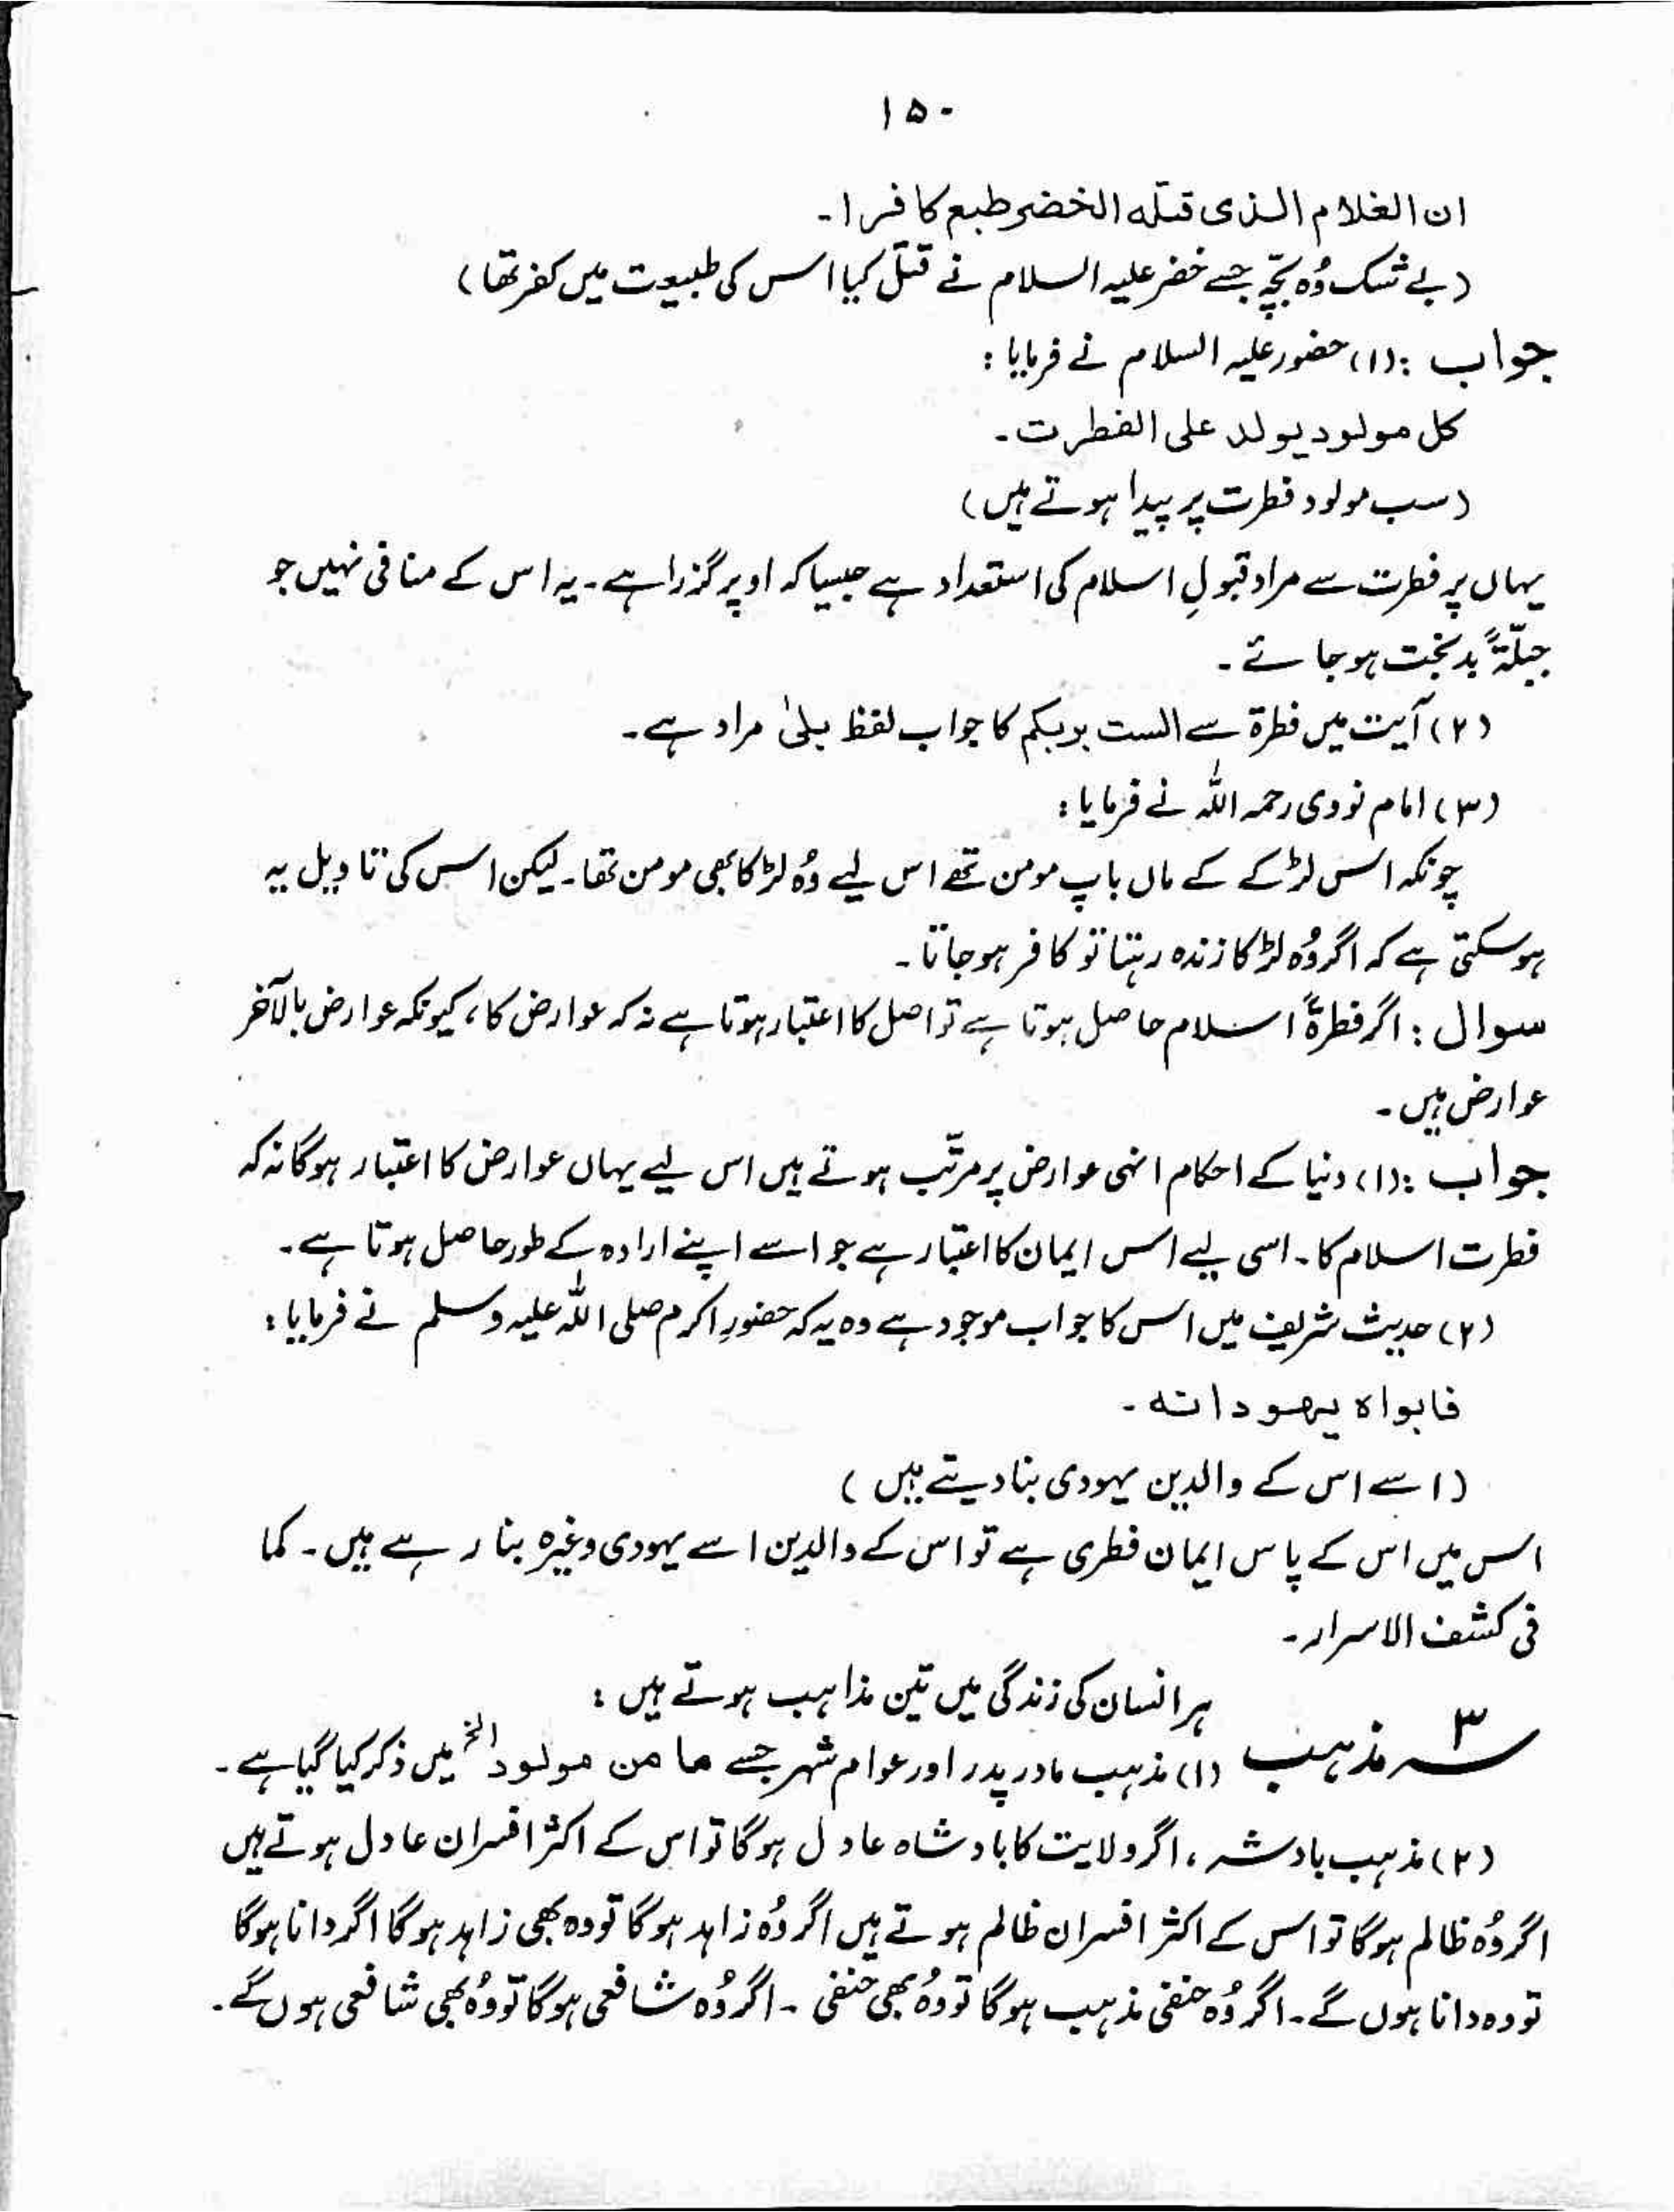 ۱۵۰
ان الغلام الذی قتلہ الخضر طبع کافرا۔
(بے شک وُہ بچّہ جسے خضر علیہ السلام نے قتل کیا اس کی طبیعت میں کفر تھا)
جواب : (۱) حضور علیہ السلام نے فرمایا :
کل مولود یولد علی الفطرت۔
(سب مولود فطرت پر پیدا ہوتے ہیں)
یہاں پر فطرت سے مراد قبولِ اسلام کی استعداد ہے جیسا کہ اوپر گزرا ہے۔ یہ اس کے منافی نہیں جو
جبلّۃً بدبخت ہوجائے۔
(۲) آیت میں فطرۃ سے الست بربکم کا جواب لفظ بلیٰ مراد ہے۔
(۳) امام نووی رحمہ اللہ نے فرمایا :
چونکہ اس لڑکے کے ماں باپ مومن تھے اس لیے وُہ لڑکا بھی مومن تھا۔ لیکن اس کی تاویل یہ
ہوسکتی ہے کہ اگر وُہ لڑکا زندہ رہتا تو کافر ہوجاتا۔
سوال : اگر فطرۃً اسلام حاصل ہوتا ہے تو اصل کا اعتبار ہوتا ہے نہ کہ عوارض کا، کیونکہ عوارض بالآخر
عوارض ہیں۔
جواب : (۱) دنیا کے احکام انہی عوارض پر مرتّب ہوتے ہیں اس لیے یہاں عوارض کا اعتبار ہوگا نہ کہ
فطرت اسلام کا۔ اسی لیے اس ایمان کا اعتبار ہے جو اسے اپنے ارادہ کے طور حاصل ہوتا ہے۔
(۲) حدیث شریف میں اس کا جواب موجود ہے وہ یہ کہ حضورِ اکرم صلی اللہ علیہ وسلم نے فرمایا :
فابواہ یہودانہ۔
(اسے اس کے والدین یہودی بنا دیتے ہیں)
اس میں اس کے پاس ایمان فطری ہے تو اس کے والدین اسے یہودی وغیرہ بنا رہے ہیں۔ کما
فی کشف الاسرار۔
ہر انسان کی زندگی میں تین مذاہب ہوتے ہیں :
۳ سہ مذہب (۱) مذہب مادر پدر اور عوام شہر جسے ما من مولود الخ میں ذکر کیا گیا ہے۔
(۲) مذہب بادشہ، اگر ولایت کا بادشاہ عادل ہوگا تو اس کے اکثر افسران عادل ہوتے ہیں
اگر وُہ ظالم ہوگا تو اس کے اکثر افسران ظالم ہوتے ہیں اگر وُہ زاہد ہوگا تو وہ بھی زاہد ہوگا اگر دانا ہوگا
تو وہ دانا ہوں گے۔ اگر وُہ حنفی مذہب ہوگا تو وُہ بھی حنفی۔ اگر وُہ شافعی ہوگا تو وُہ بھی شافعی ہوں گے۔